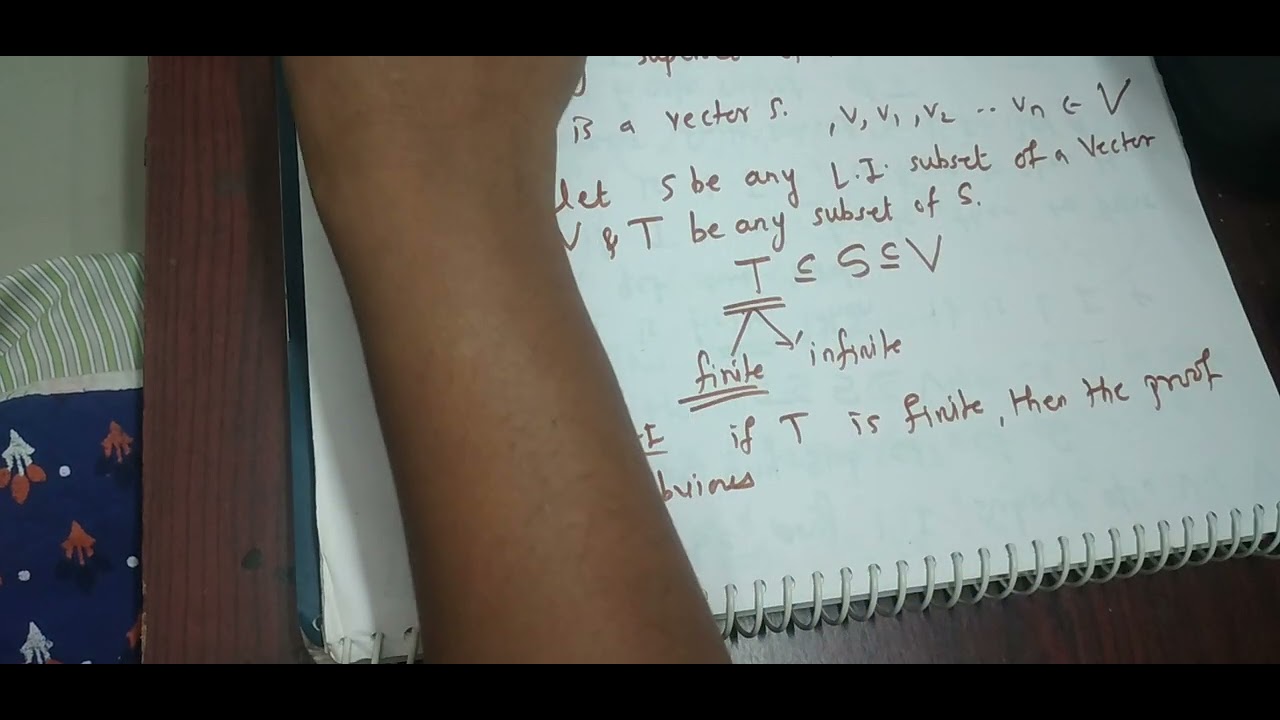 is a vector S. , V, V₁, V₂ .. Vn ∈ V
let S be any L.I. subset of a Vector
V & T be any subset of S.
T ⊆ S ⊆ V
finite infinite
if T is finite, then the proof